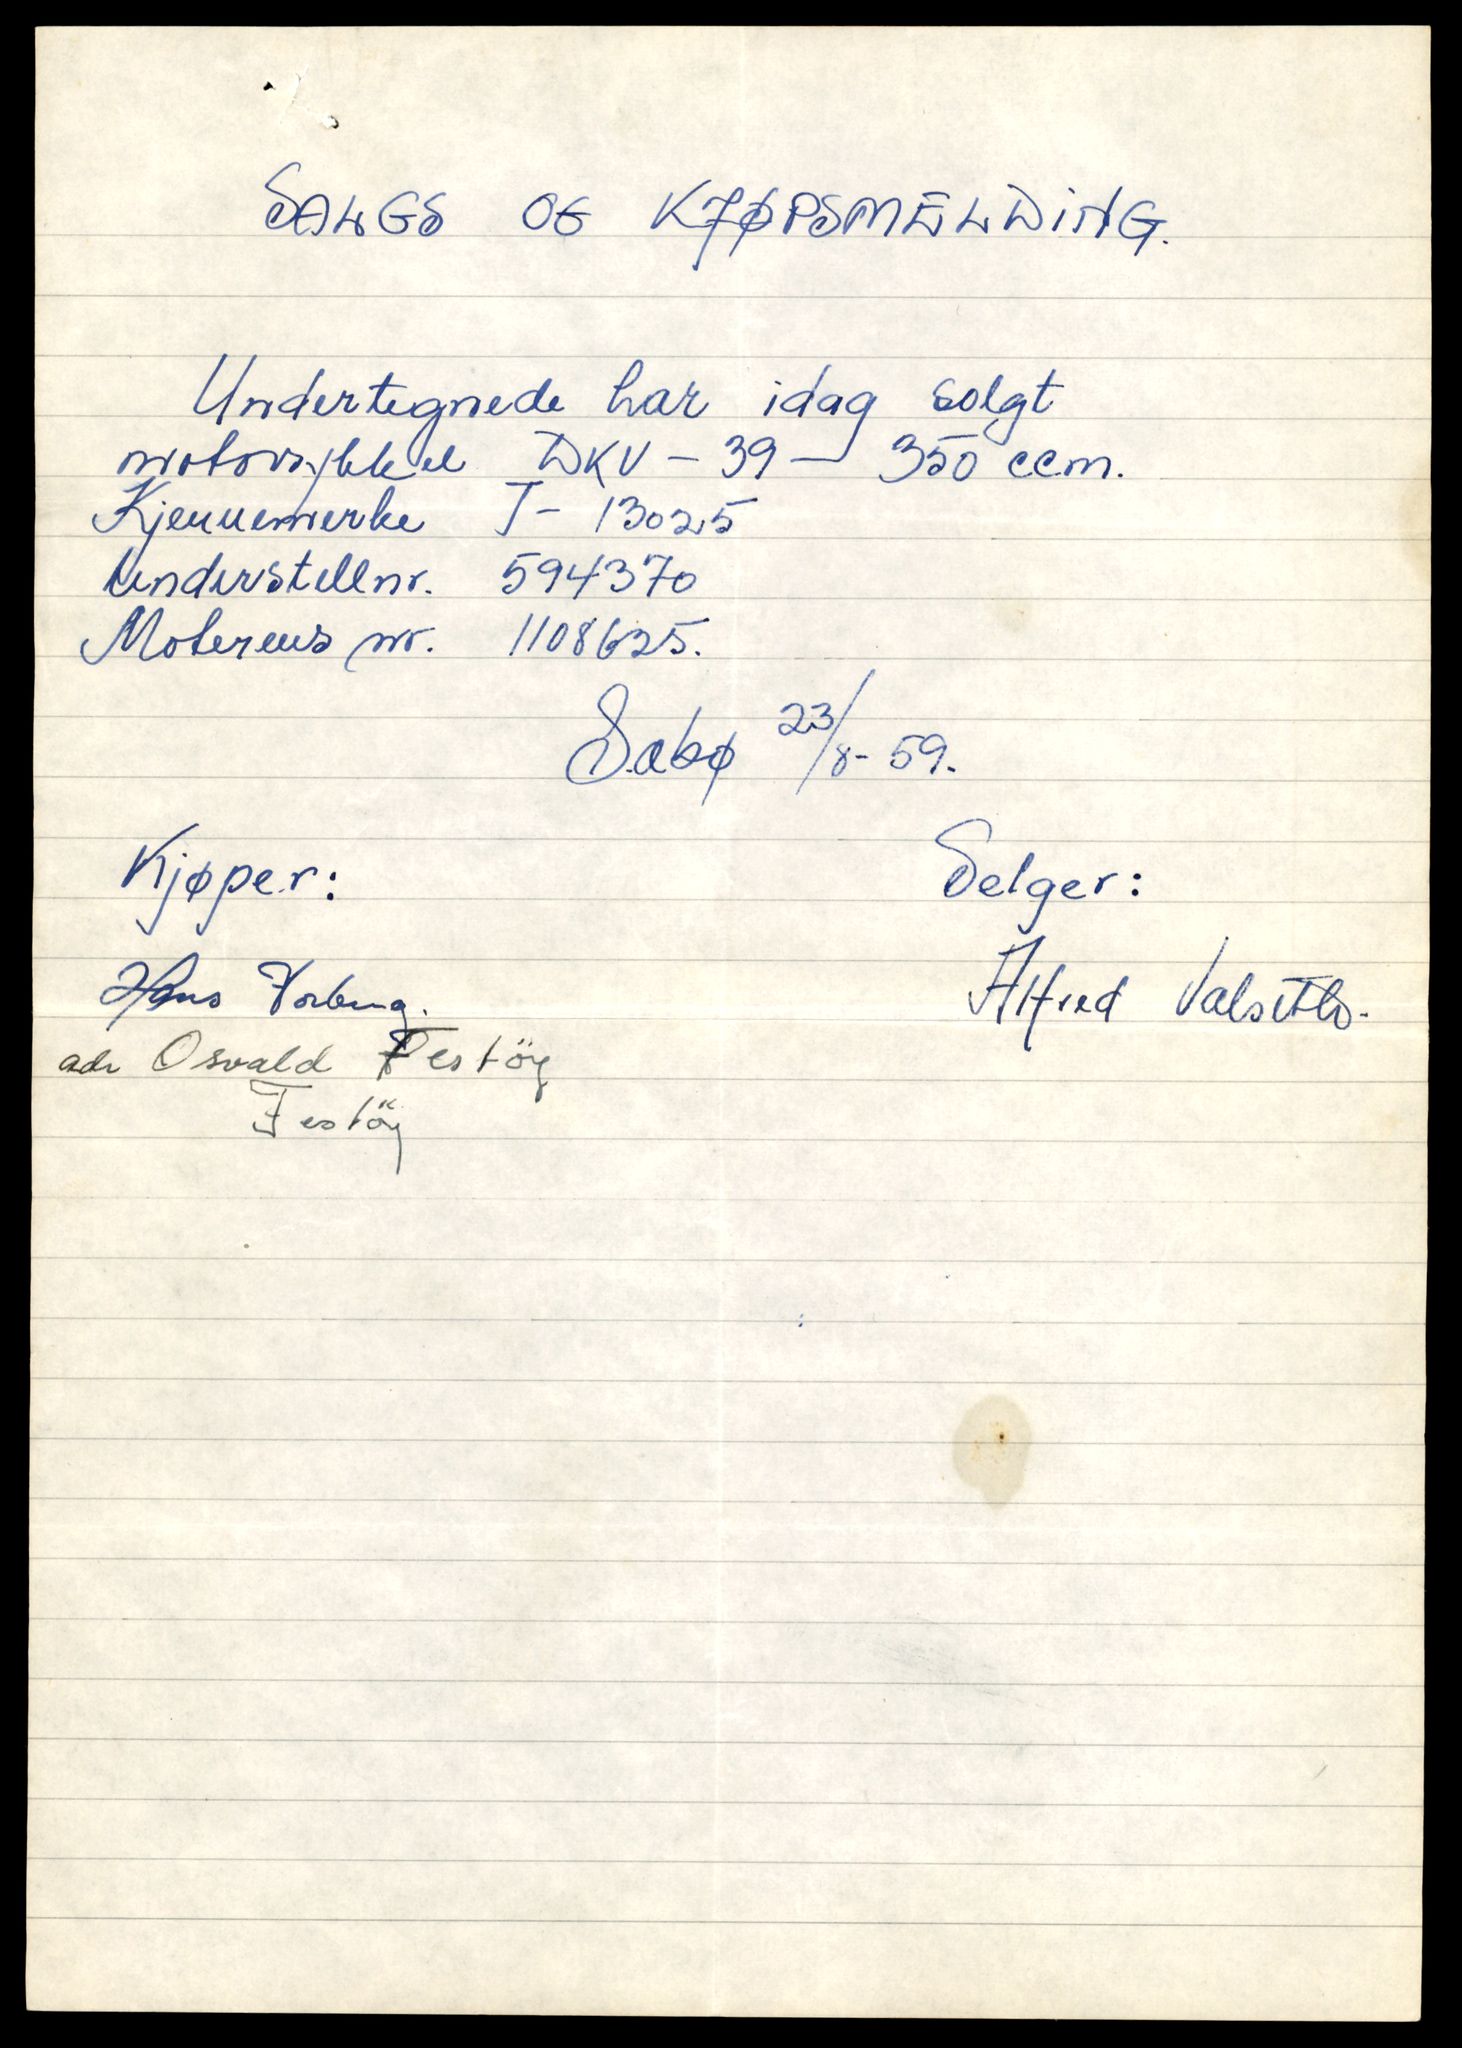 SALGS OG KJØPSMELDING.
Undertegnede har idag solgt
motorsykkel DKV - 39 - 350 ccm.
Kjennemerke T - 13025
Understellnr. 594370
Moterens nr. 1108625.
Sæbø 23/8 - 59.
Kjøper: Selger:
Hans Alfred
adr Osvald Festöy
Festöy